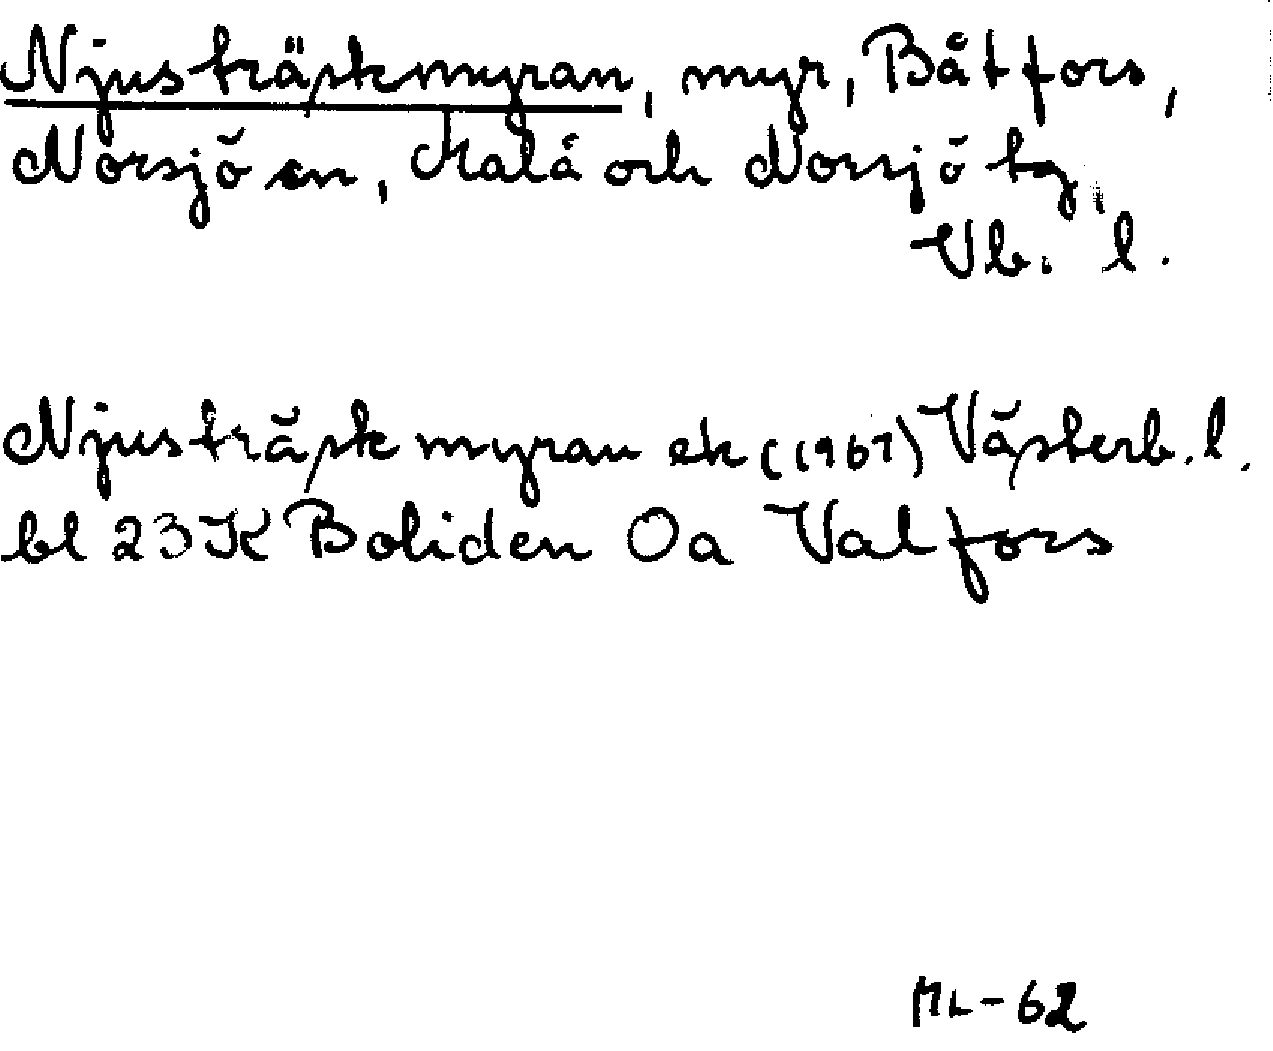 Njusträskmyran, myr, Båtfors,
Norsjö sn, Malå och Norsjö tg,
Vb. l.
Njusträskmyran ek (1961) Västerb. l.
bl 23K Boliden Oa Valfors
ML-62